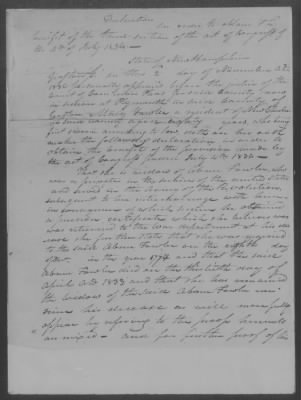 Declaration
in order to obtain the
benefit of the third section of the act of Congress of
the 4th of July 1836
State of New Hampshire
Grafton ss. on this 2 day of November A.D.
personally appeared before the Justices of the
Court of Common Pleas for said County now
in session at Plymouth in said County
Abigail Fowler a resident of
in said County aged eighty years, who being
first sworn according to law doth on her oath
make the following declaration in order to
obtain the benefit of the provision made by
the act of Congress passed July 4th 1836
That she is widow of Abner Fowler, who
was a private in the service of the United States
and served in the Army of the Revolution
subsequent to his intermarriage with her
in consequence of which service he obtained
a pension certificate which she believes was
was returned to the War department at his de
cease she further states that she was married
to the said Abner Fowler on the eighth day
of in the year 1778 and that the said
Abner Fowler died on the thirtieth day of
April A.D. 1833 and that she has remained
the widow of the said Abner Fowler ever
since his decease as will more fully
appear by referring to the proof hereunto
annexed and for further proof of his